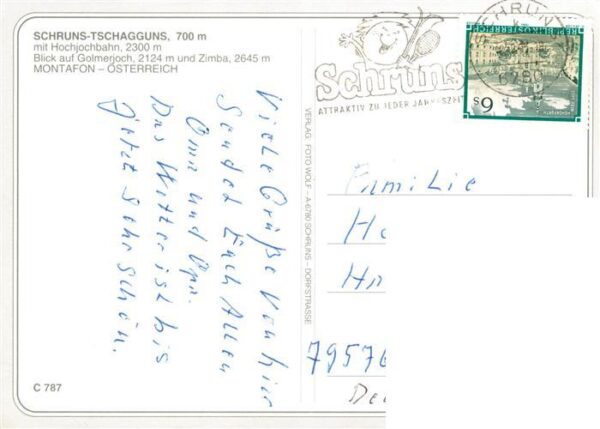 SCHRUNS-TSCHAGGUNS, 700 m
mit Hochjochbahn, 2300 m
Blick auf Golmerjoch, 2124 m und Zimba, 2645 m
MONTAFON – ÖSTERREICH
Viele Grüße von hier
Sendet Euch Allen
Oma und Opa.
Das Wetter ist bis
Jetzt Sehr Schön.
C 787
VERLAG FOTO WOLF - A-6780 SCHRUNS - DORFSTRASSE
Schruns
ATTRAKTIV ZU JEDER JAHRESZEIT
SCHRUNS
6780
REPUBLIK ÖSTERREICH
S 6
Familie
79576